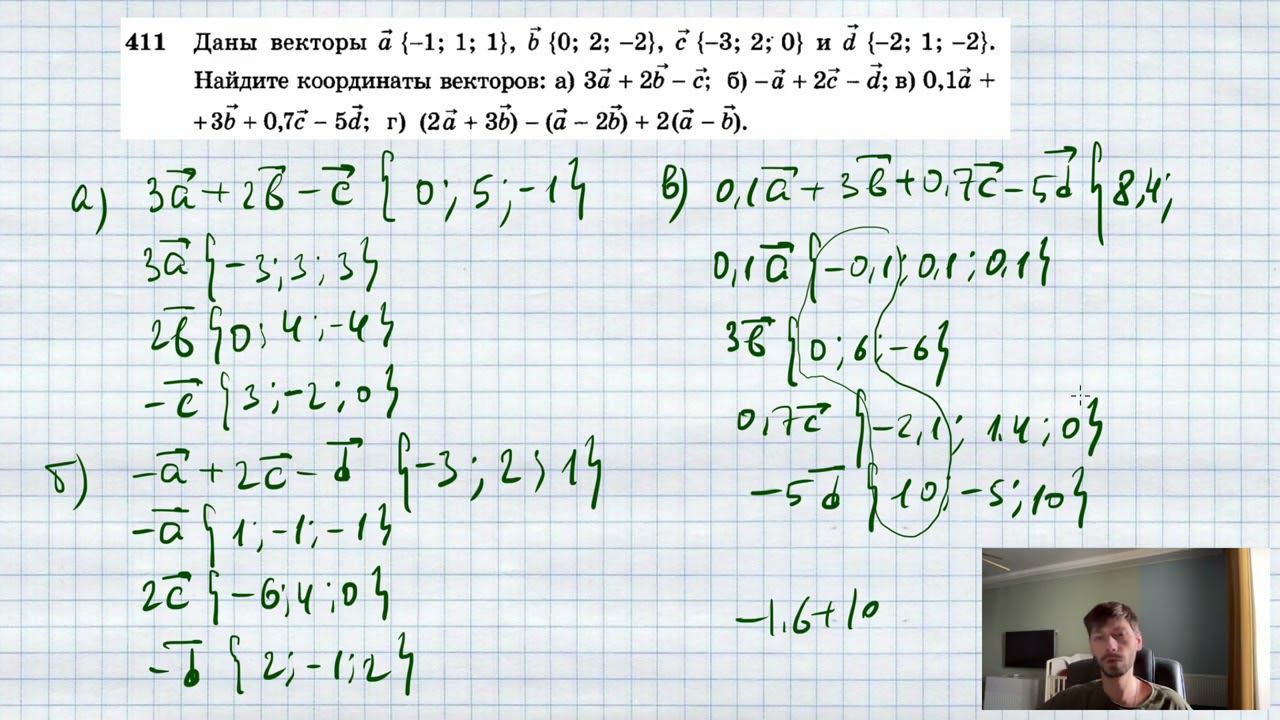 411 Даны векторы a⃗ {–1; 1; 1}, b⃗ {0; 2; –2}, c⃗ {–3; 2; 0} и d⃗ {–2; 1; –2}.
Найдите координаты векторов: а) 3a⃗ + 2b⃗ – c⃗; б) –a⃗ + 2c⃗ – d⃗; в) 0,1a⃗ +
+ 3b⃗ + 0,7c⃗ – 5d⃗; г) (2a⃗ + 3b⃗) – (a⃗ – 2b⃗) + 2(a⃗ – b⃗).
а) 3a⃗ + 2b⃗ – c⃗ {0; 5; –1}
3a⃗ {–3; 3; 3}
2b⃗ {0; 4; –4}
–c⃗ {3; –2; 0}
б) –a⃗ + 2c⃗ – d⃗ {–3; 2; 1}
–a⃗ {1; –1; –1}
2c⃗ {–6; 4; 0}
–d⃗ {2; –1; 2}
в) 0,1a⃗ + 3b⃗ + 0,7c⃗ – 5d⃗ {8,4;
0,1a⃗ {–0,1; 0,1; 0,1}
3b⃗ {0; 6; –6}
0,7c⃗ {–2,1; 1.4; 0}
–5d⃗ {10; –5; 10}
–1.6+10